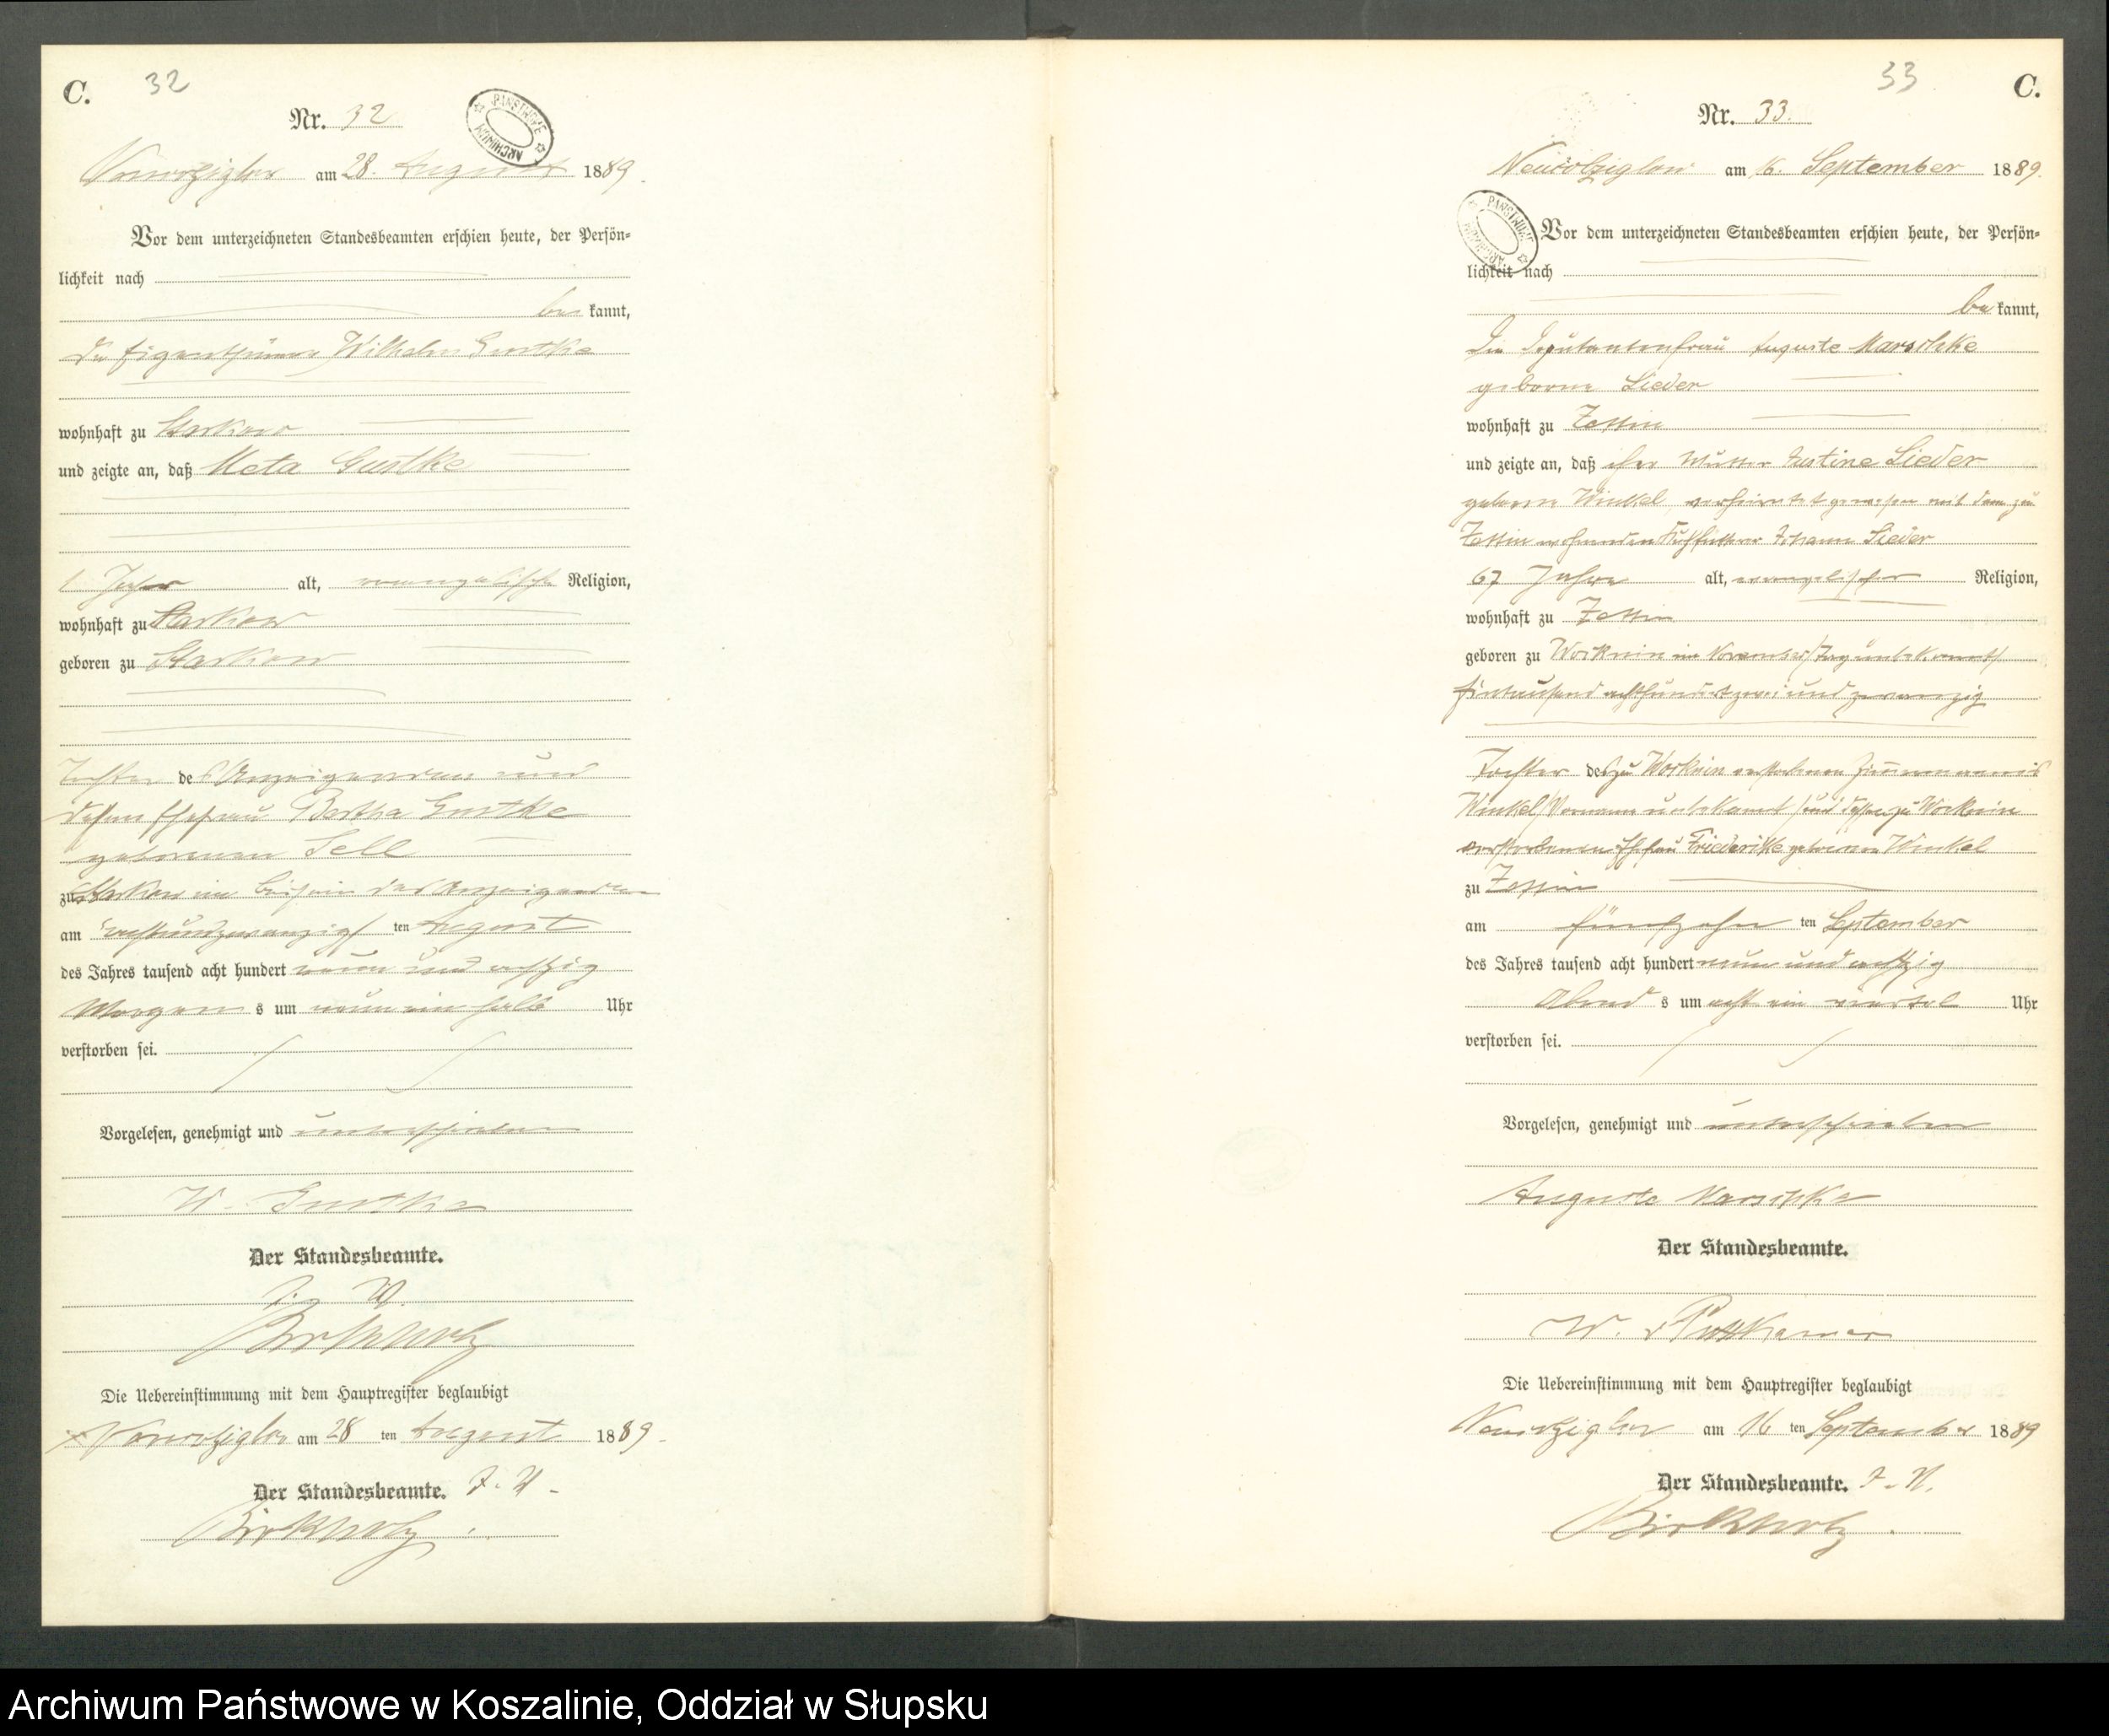 C. 32
Nr. 32
PAŃSTWOWE ARCHIWUM
am 28. August 1889.
Vor dem unterzeichneten Standesbeamten erschien heute, der Persön=
lichkeit nach
be kannt,
der Eigenthümer Wilhelm Gustke
wohnhaft zu Starkow
und zeigte an, daß Meta Gustke
1 Jahr alt, evangelischer Religion,
wohnhaft zu Starkow
geboren zu Starkow
Tochter des Anzeigenden und
dessen Ehefrau Bertha Gustke
geborenen Sell
zu Starkow im Beisein des Anzeigenden
am achtundzwanzigsten ten August
des Jahres tausend acht hundert neun und achtzig
Morgen s um neun ein halb Uhr
verstorben sei.
Vorgelesen, genehmigt und unterschrieben
W. Gustke
Der Standesbeamte.
J. V.
Birkholz
Die Uebereinstimmung mit dem Hauptregister beglaubigt
am 28 ten August 1889.
Der Standesbeamte. J. V.
Birkholz
33 C.
Nr. 33.
am 16. September 1889.
PAŃSTWOWE ARCHIWUM
Vor dem unterzeichneten Standesbeamten erschien heute, der Persön=
lichkeit nach
be kannt,
die Deputantenfrau Auguste Marschke
geborne Lieder
wohnhaft zu Zettin
und zeigte an, daß ihre Mutter Justine Lieder
geborne Winkel verheiratet gewesen mit dem zu
Zettin wohnenden Kuhfütterer Johann Lieder
67 Jahre alt, evangelischer Religion,
wohnhaft zu Zettin
geboren zu im November /Tag unbekannt/
Eintausend achthundert zwei und zwanzig
Tochter des zu verstorbenen Zimmermanns
Winkel /Vorname unbekannt/ und dessen zu
verstorbenen Ehefrau Friederike geborenen Winkel
zu Zettin
am fünfzehn ten September
des Jahres tausend acht hundert neun und achtzig
Abend s um acht ein viertel Uhr
verstorben sei.
Vorgelesen, genehmigt und unterschrieben
Auguste Marschke
Der Standesbeamte.
W. v Puttkamer
Die Uebereinstimmung mit dem Hauptregister beglaubigt
am 16 ten September 1889
Der Standesbeamte. J. V.
Birkholz.
Archiwum Państwowe w Koszalinie, Oddział w Słupsku